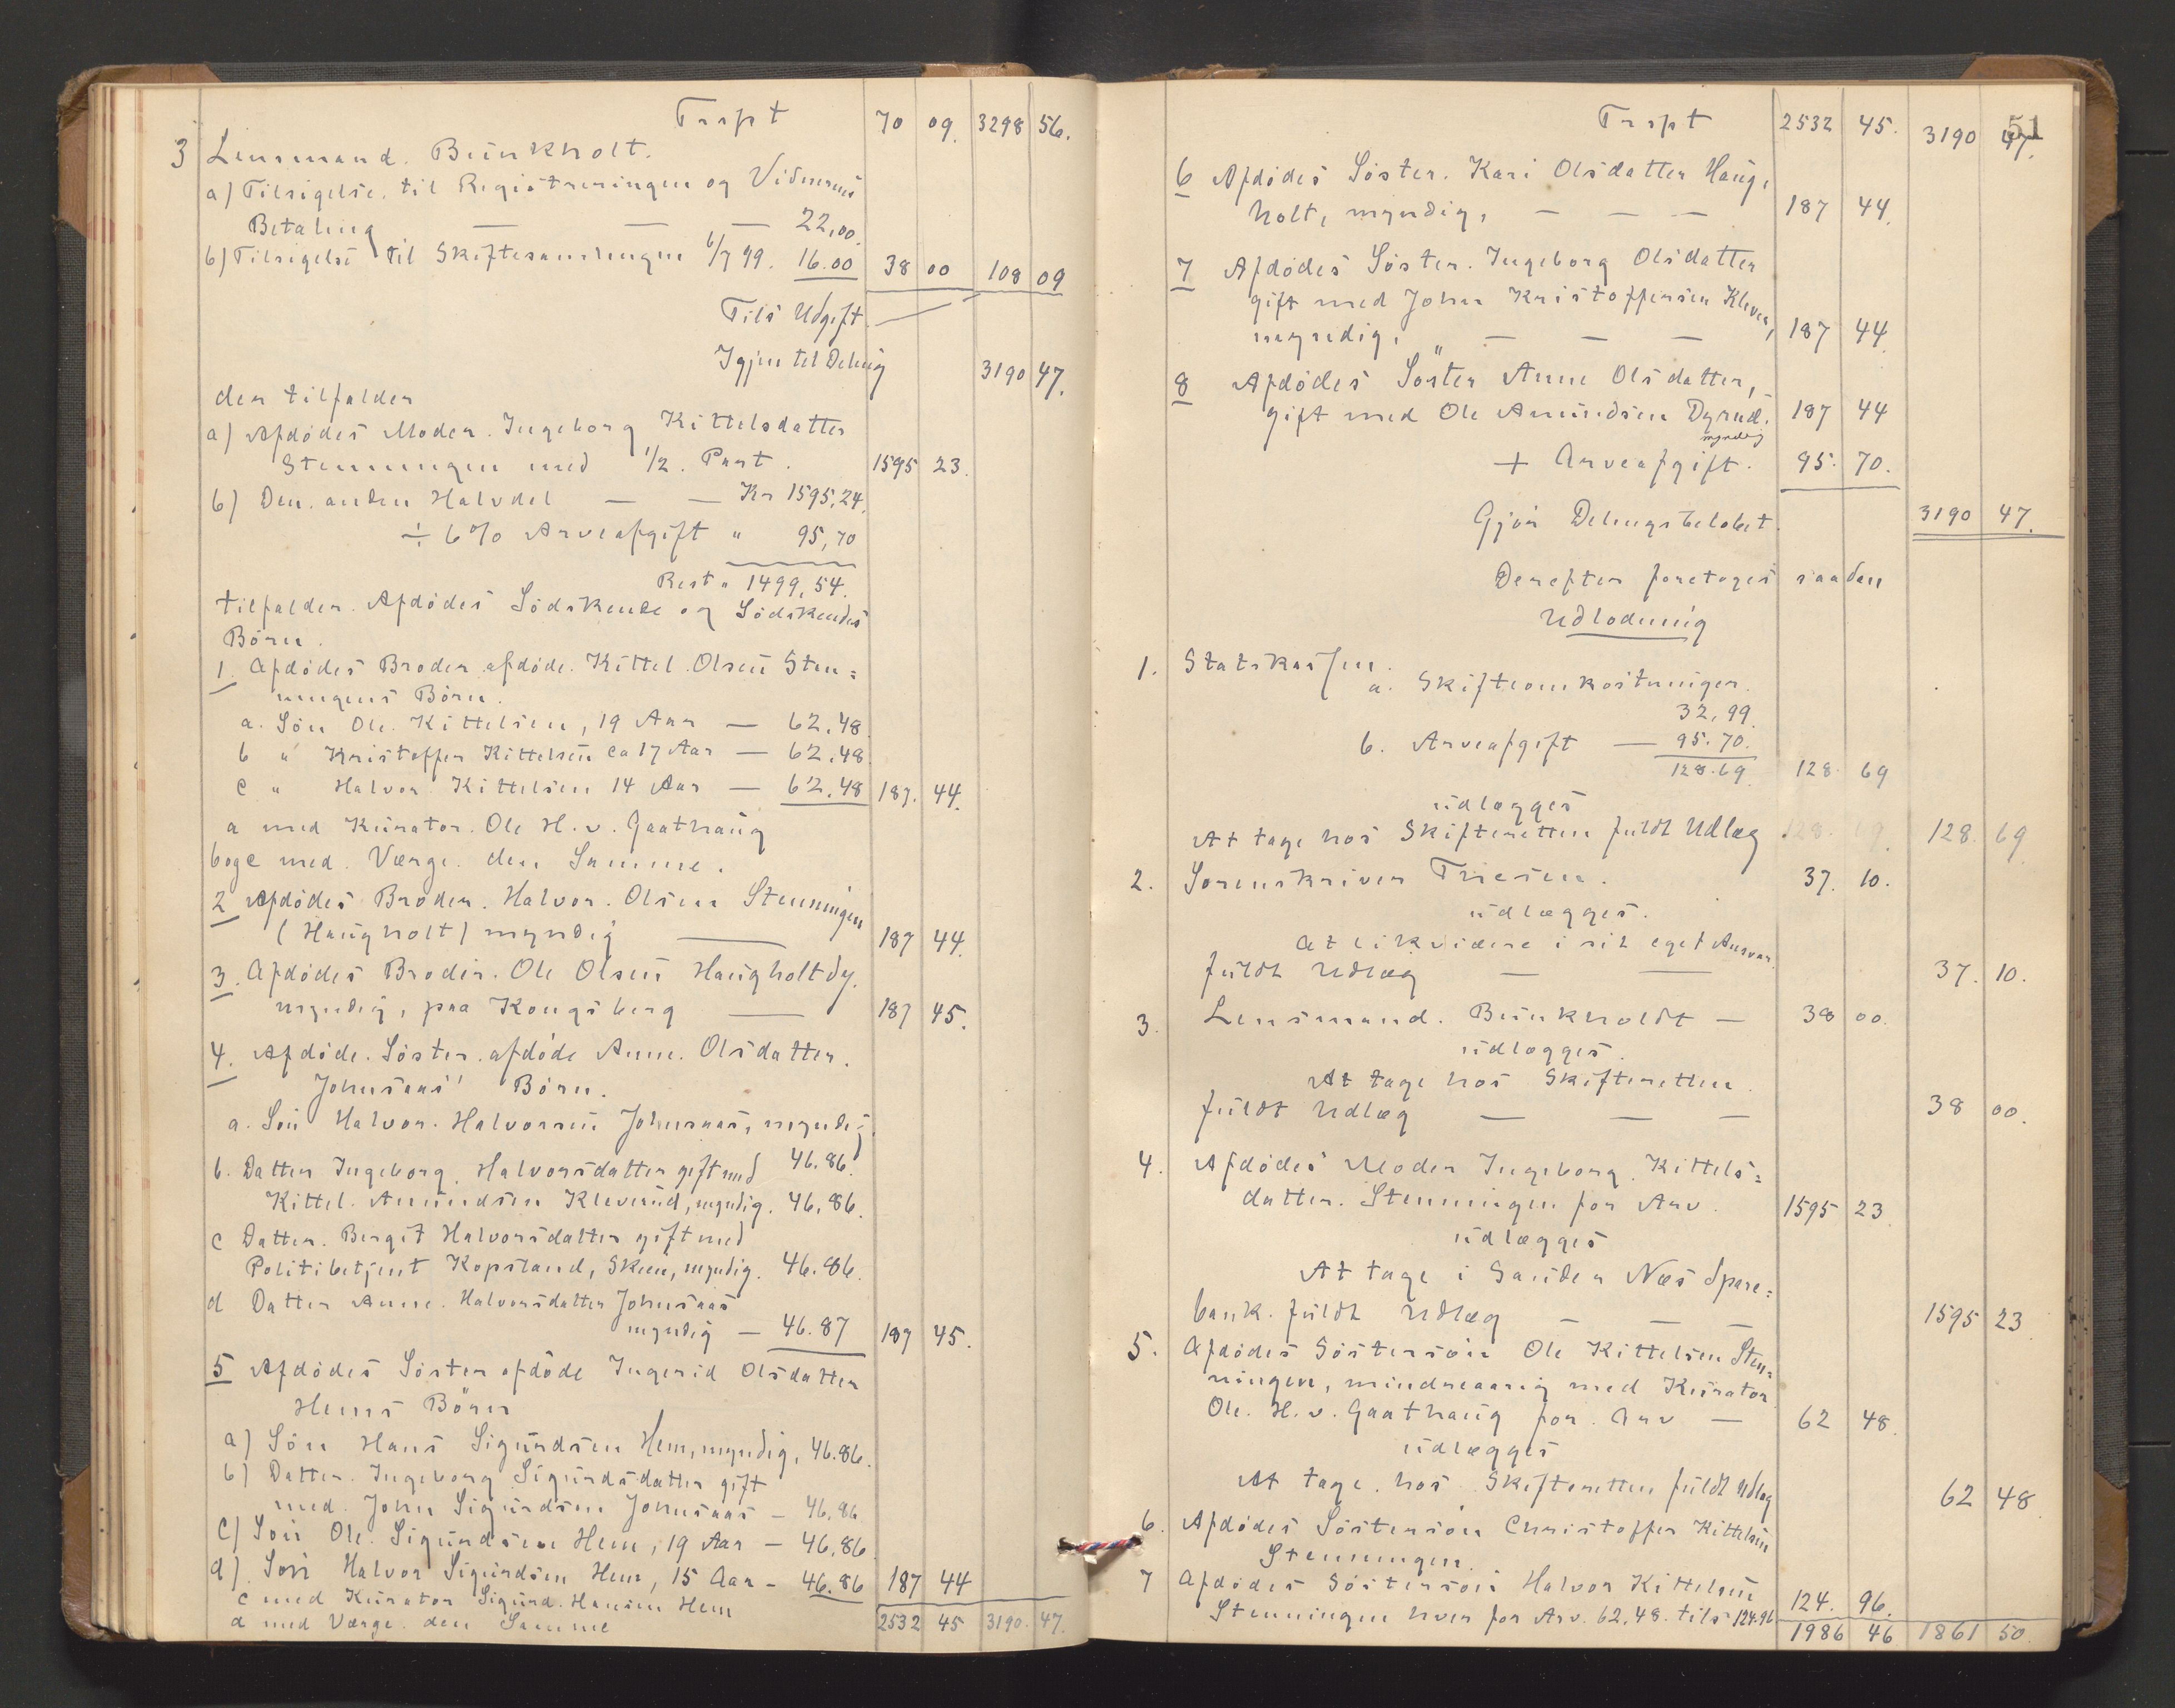 Trspt 70 09. 3298 56.
3 Lensmand. Bunkholt.
a) Tilsigelse. til Registreringen og Vidnernes
Betaling — — — 22,00.
b) Tilsigelse til Skiftesamlingen 6/7 99. 16.00 38 00 108 09
Tils Udgift
Igjen til Deling 3190 47.
der tilfalder
a) Afdødes Moder. Ingeborg Kittelsdatter
Stenningen med 1/2. Part. 1595 23.
b) Den. anden Halvdel — — Kr 1595,24.
÷ 6% Arveafgift " 95,70
Rest " 1499,54.
tilfalder. Afdødes Södskende og Södskendes
Börn.
1. Afdödes Broder. afdöde. Kittel. Olsen Sten=
ningens Börn.
a. Sön Ole. Kittelsen, 19 Aar — 62.48
b " Kristoffer Kittelsen ca 17 Aar — 62.48
c " Halvor Kittelsen 14 Aar — 62.48 187. 44.
a med Kurator. Ole H. v. Gaathaug
b og c med. Værge. den Samme.
2 Afdödes Broder. Halvor. Olsen Stenningen
(Haugholt) myndig — 187 44.
3. Afdödes Broder. Ole Olsen Haugholt dy.
myndig, paa Kongsberg — 187 45.
4. Afdöde. Söster. afdöde Anne. Olsdatter.
Johnsaas' Börn.
a. Sön Halvor. Halvorsen Johnsaas, myndig.
46.86.
b. Datter Ingeborg. Halvorsdatter gift med
Kittel. Amundsen Kleverud, myndig. 46.86.
c Datter. Bergit Halvorsdatter gift med
Politibetjent Kopsland, Skien, myndig. 46.86.
d Datter Anne. Halvorsdatter Johnsaas
myndig — 46.87 187 45.
5 Afdödes Söster afdöde Ingerid Olsdatter
Hems Börn
a) Sön Hans Sigurdsen Hem, myndig, 46.86.
b) Datter. Ingeborg Sigurdsdatter gift
med. John Sigurdsen Johnsaas — 46,86
c) Sön Ole. Sigurdsen Hem, 19 Aar — 46,86
d) Sön Halvor Sigurdsen Hem, 15 Aar — 46.86 187 44
c med Kurator Sigurd. Hansen Hem
d med Værge. den Samme 2532 45 3190. 47.
51
Trspt 2532 45. 3190 47.
6 Afdödes Söster. Kari Olsdatter Haug,
holt, myndig, — — — 187 44.
7 Afdödes Söster. Ingeborg Olsdatter
gift med John Kristoffersen Kleven,
myndig, — — — 187 44.
8 Afdödes Söster Anne Olsdatter,
gift med Ole Amundsen Dyrud. 187 44
myndig
+ Arveafgift. 95. 70.
Gjör Delingsbelöbet. 3190 47.
Derefter foretoges saadan
Udlodning
1. Statskassen.
a. Skifteomkostninger.
32,99.
b. Arveafgift — 95.70.
128.69 128. 69
udlægges
At tage hos Skifteretten fuldt Udlæg 128. 69. 128. 69
2. Sorenskriver Friesen. 37. 10.
udlægges.
At likvidere i sit eget Ansvar
fuldt Udlæg — — 37. 10.
3. Lensmand. Bunkholdt — 38 00.
udlægges.
At tage hos Skifteretten.
fuldt Udlæg — — — 38 00.
4. Afdödes Moder Ingeborg. Kittels=
datter. Stenningen for Arv. 1595 23
udlægges
At tage i Sandsv Næs Spare=
bank. fuldt Udlæg — — — 1595 23
5. Afdödes Söstersön Ole Kittelsen Sten,
ningen, mindreaarig med Kurator
Ole. H. v. Gaathaug for. Arv — 62 48.
udlægges
At tage. hos. Skifteretten fuldt Udlæg 62 48
6. Afdödes Söstersön Christoffer Kittelsen
Stenningen.
7 Afdödes Söstersön Halvor Kittelsen
Stenningen hver for Arv. 62.48. tils 124.96 124. 96.
1986 46 1861 50.